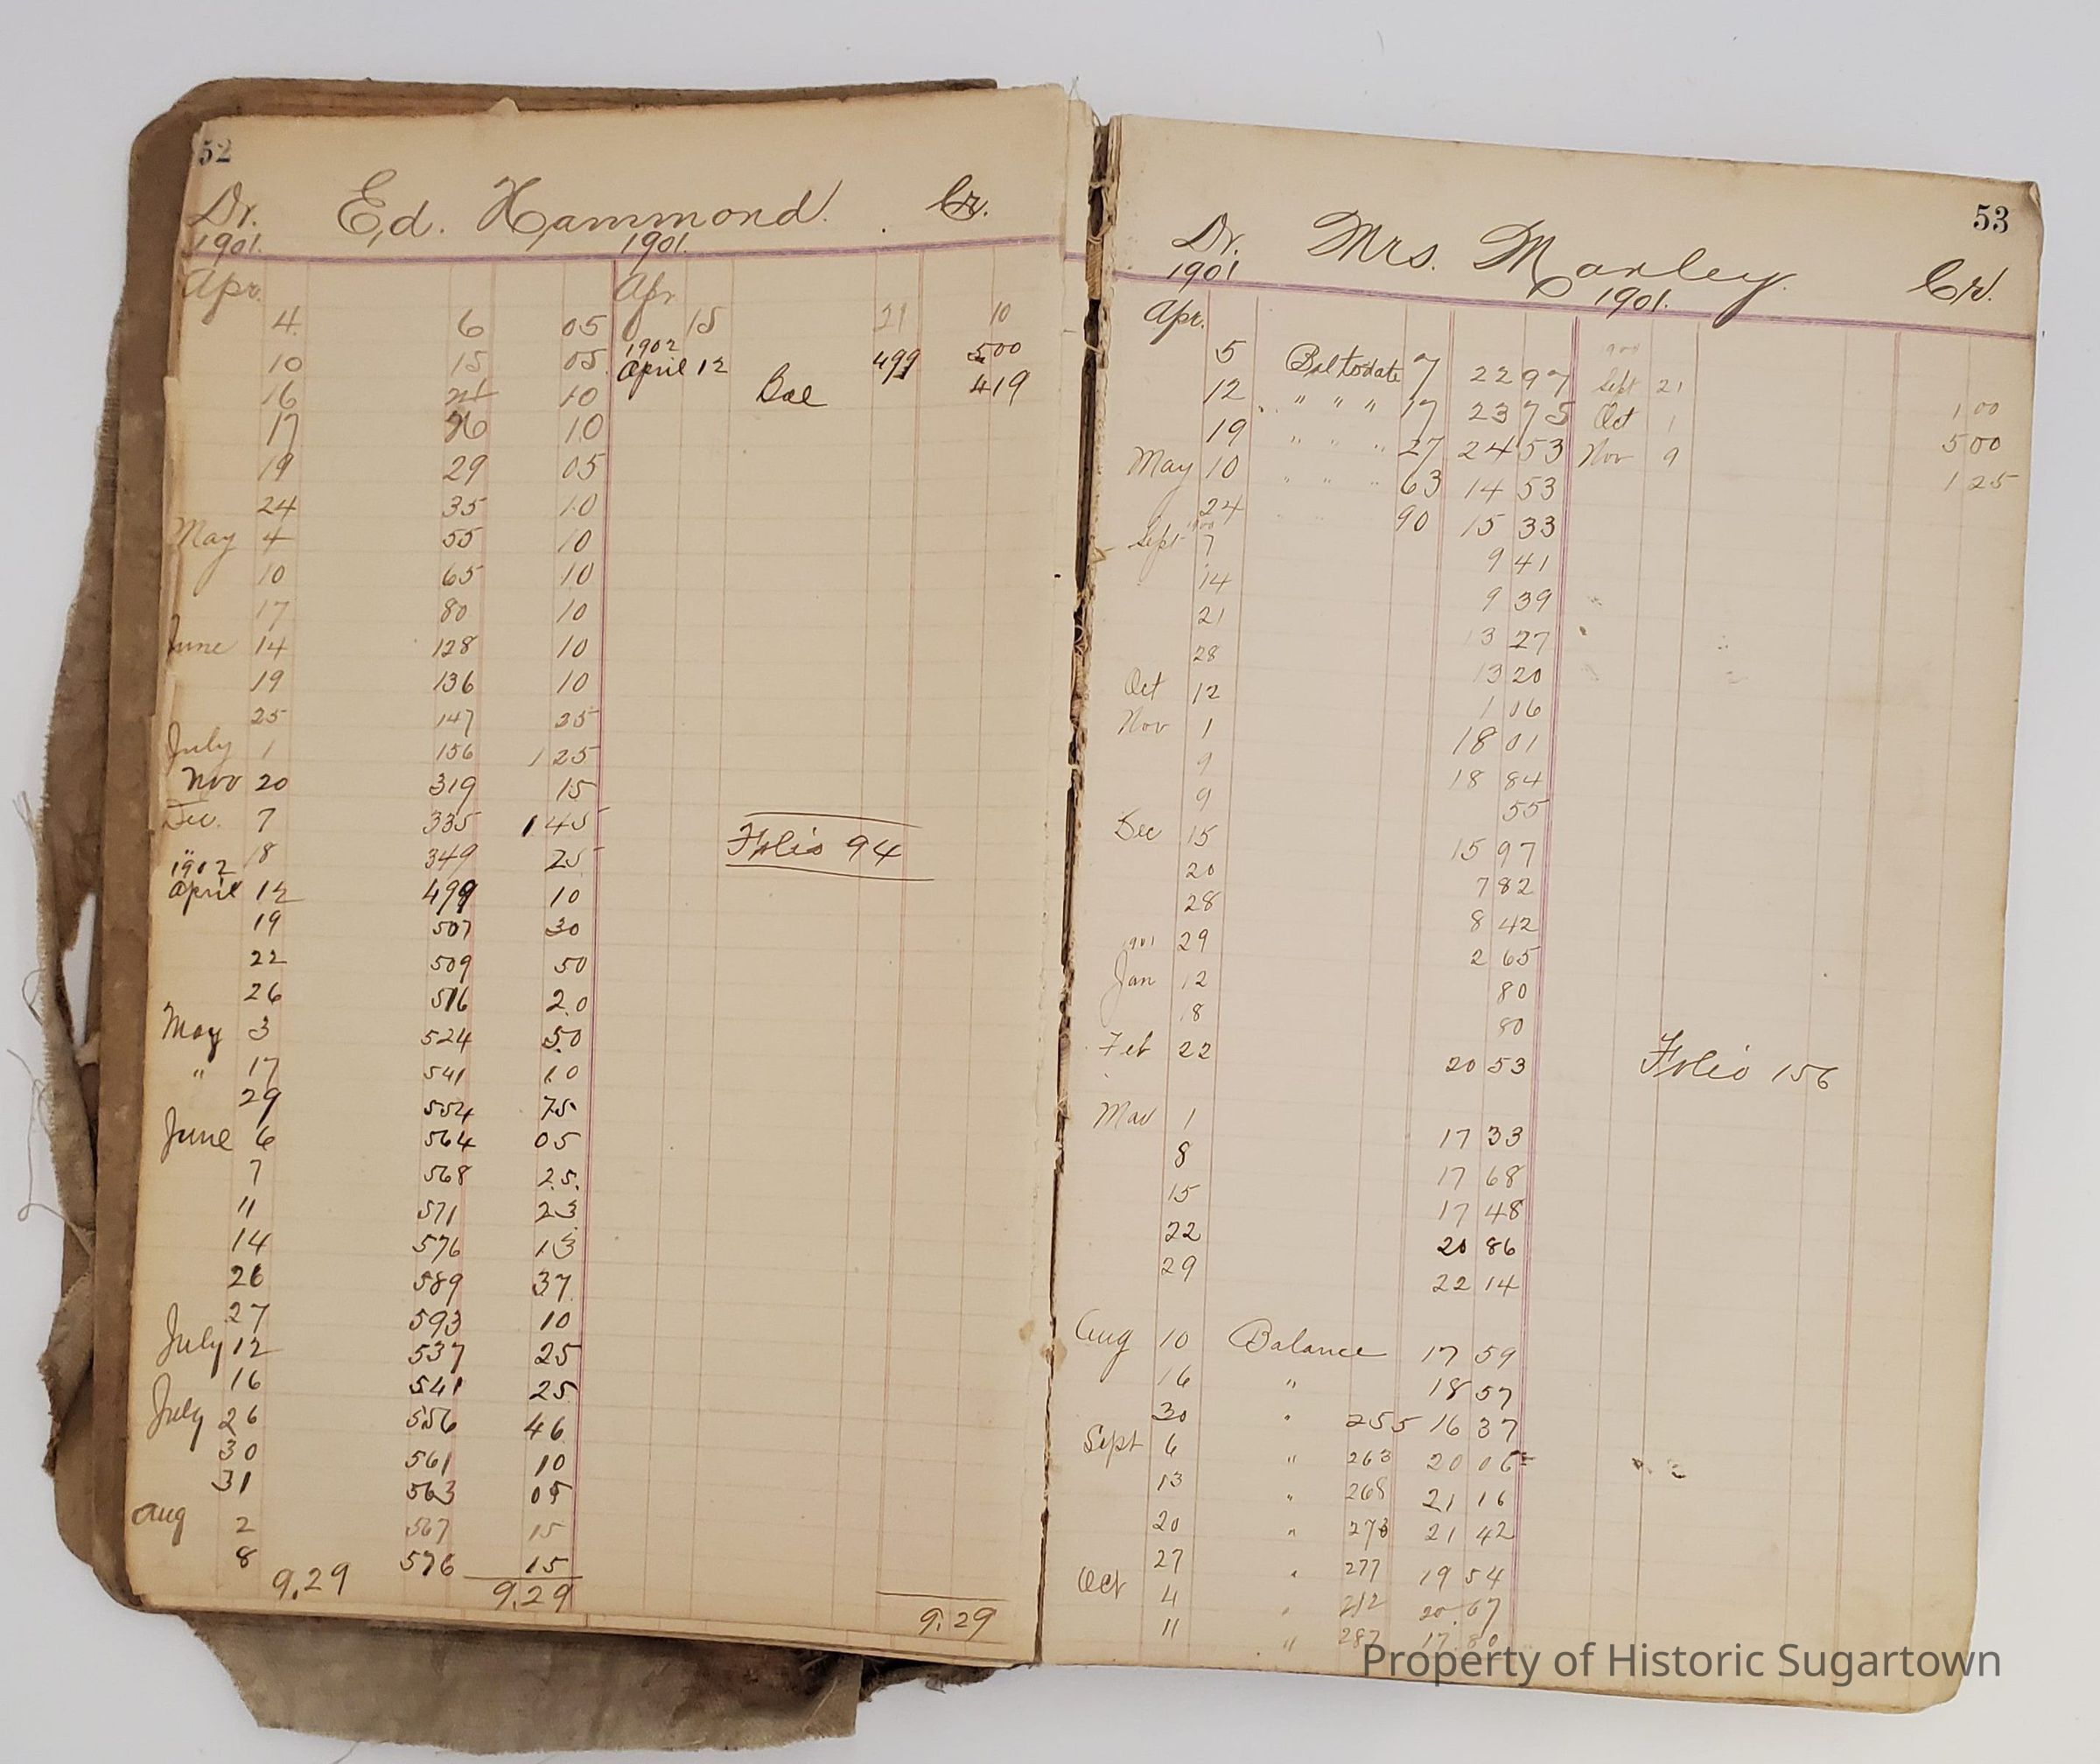 52
Dr. Ed. Hammond. Cr.
1901. 1901.
Apr. Apr
4. 6 05 15 21 10
1902
10 15 05 April 12 499 500
16 21 10 Bal 419
17 26 10
19 29 05
24 35 10
May 4 55 10
10 65 10
17 80 10
June 14 128 10
19 136 10
25 147 25
July 1 156 1 25
Nov 20 319 15
Dec. 7 335 1 45
" 18 349 25 Folio 94
1902
April 12 499 10
19 507 30
22 509 50
26 516 20
May 3 524 50
" 17 541 10
29 554 75
June 6 564 05
7 568 25
11 571 23
14 576 13
26 589 37
27 593 10
July 12 537 25
16 541 25
July 26 556 46
30 561 10
31 563 05
Aug 2 567 15
8 576 15
9.29 9.29 9.29
53
Dr. Mrs. Marley. Cr.
1901 1901.
Apr.
5 Bal to date 7 22 97 Sept 21 1 00
12 " " " 17 23 75 Oct 1 5 00
19 " " " 27 24 53 Nov 9 1 25
May 10 " " " 63 14 53
24 90 15 33
Sept 7 9 41
14 9 39
21 13 27
28 13 20
Oct 12 1 06
Nov 1 18 01
9 18 84
9 55
Dec 15 15 97
20 7 82
28 8 42
1901 29 2 65
Jan 12 80
18 80
Feb 22 20 53 Folio 156
Mar 1 17 33
8 17 68
15 17 48
22 20 86
29 22 14
Aug 10 Balance 17 59
16 " 18 57
30 " 255 16 37
Sept 6 " 263 20 06
13 " 268 21 16
20 " 273 21 42
27 " 277 19 54
Oct 4 " 282 20.67
11 " 287 17.80
Property of Historic Sugartown